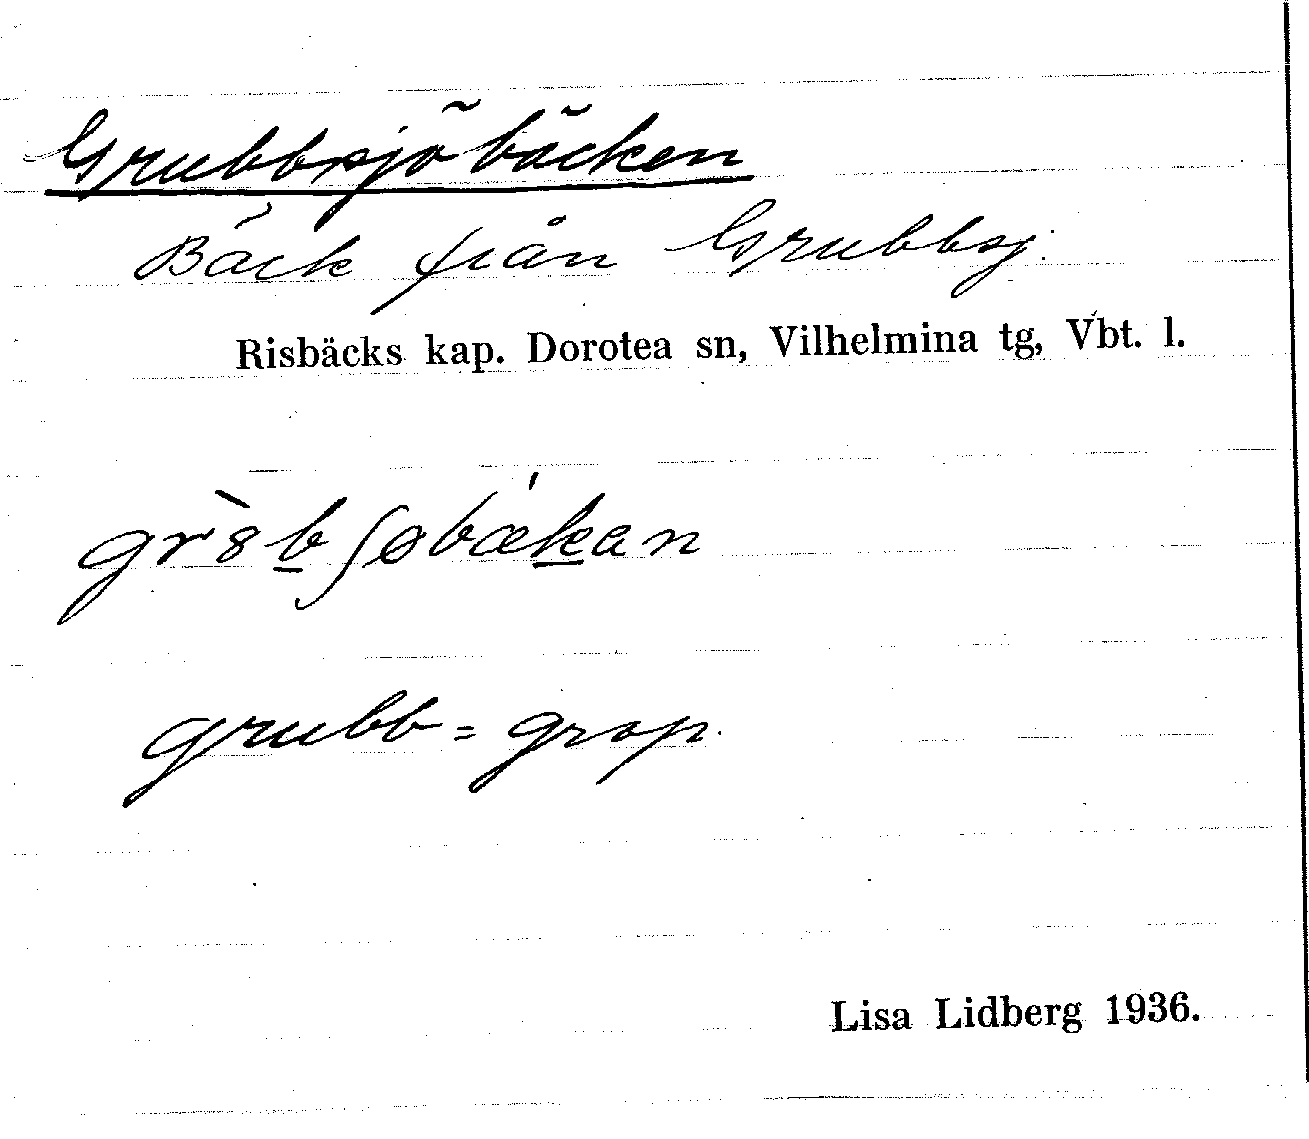 Grubbsjöbäcken
Bäck från Grubbsj.
Risbäcks kap. Dorotea sn, Vilhelmina tg, Vbt. l.
gr8̀bʃøbæ'kan
grubb = grop.
Lisa Lidberg 1936.